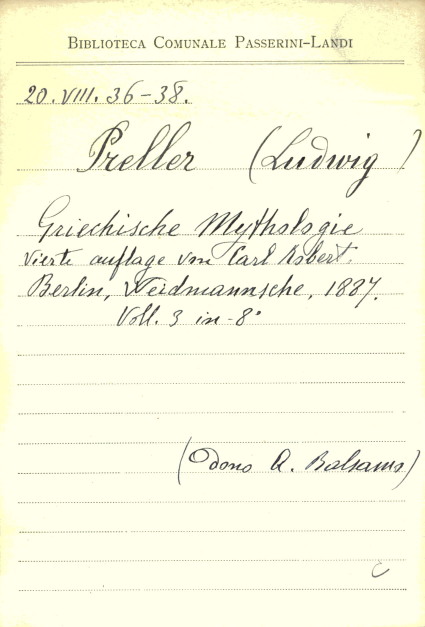 Biblioteca Comunale Passerini-Landi
20.VIII.36-38.
Preller (Ludwig)
Griechische Mythologie
vierte auflage von Carl Robert.
Berlin, Weidmannsche, 1887.
Voll. 3 in-8°
(Dono A. Balsamo)
C